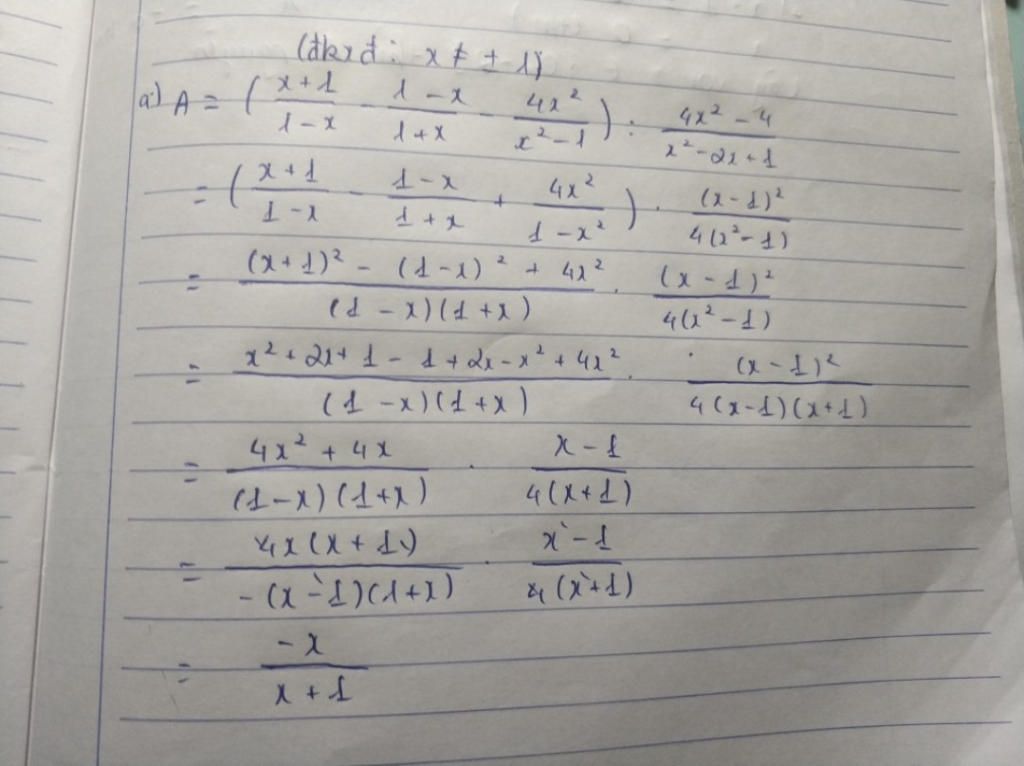 (đkxđ: x ≠ ± 1)
a) A = ( \frac{x+1}{1-x} - \frac{1-x}{1+x} - \frac{4x²}{x²-1} ) : \frac{4x²-4}{x²-2x+1}
= ( \frac{x+1}{1-x} - \frac{1-x}{1+x} + \frac{4x²}{1-x²} ) . \frac{(x-1)²}{4(x²-1)}
= \frac{(x+1)² - (1-x)² + 4x²}{(1-x)(1+x)} . \frac{(x-1)²}{4(x²-1)}
= \frac{x² + 2x + 1 - 1 + 2x - x² + 4x²}{(1-x)(1+x)} . \frac{(x-1)²}{4(x-1)(x+1)}
= \frac{4x² + 4x}{(1-x)(1+x)} . \frac{x-1}{4(x+1)}
= \frac{4x(x+1)}{-(x-1)(1+x)} . \frac{x-1}{4(x+1)}
= \frac{-x}{x+1}